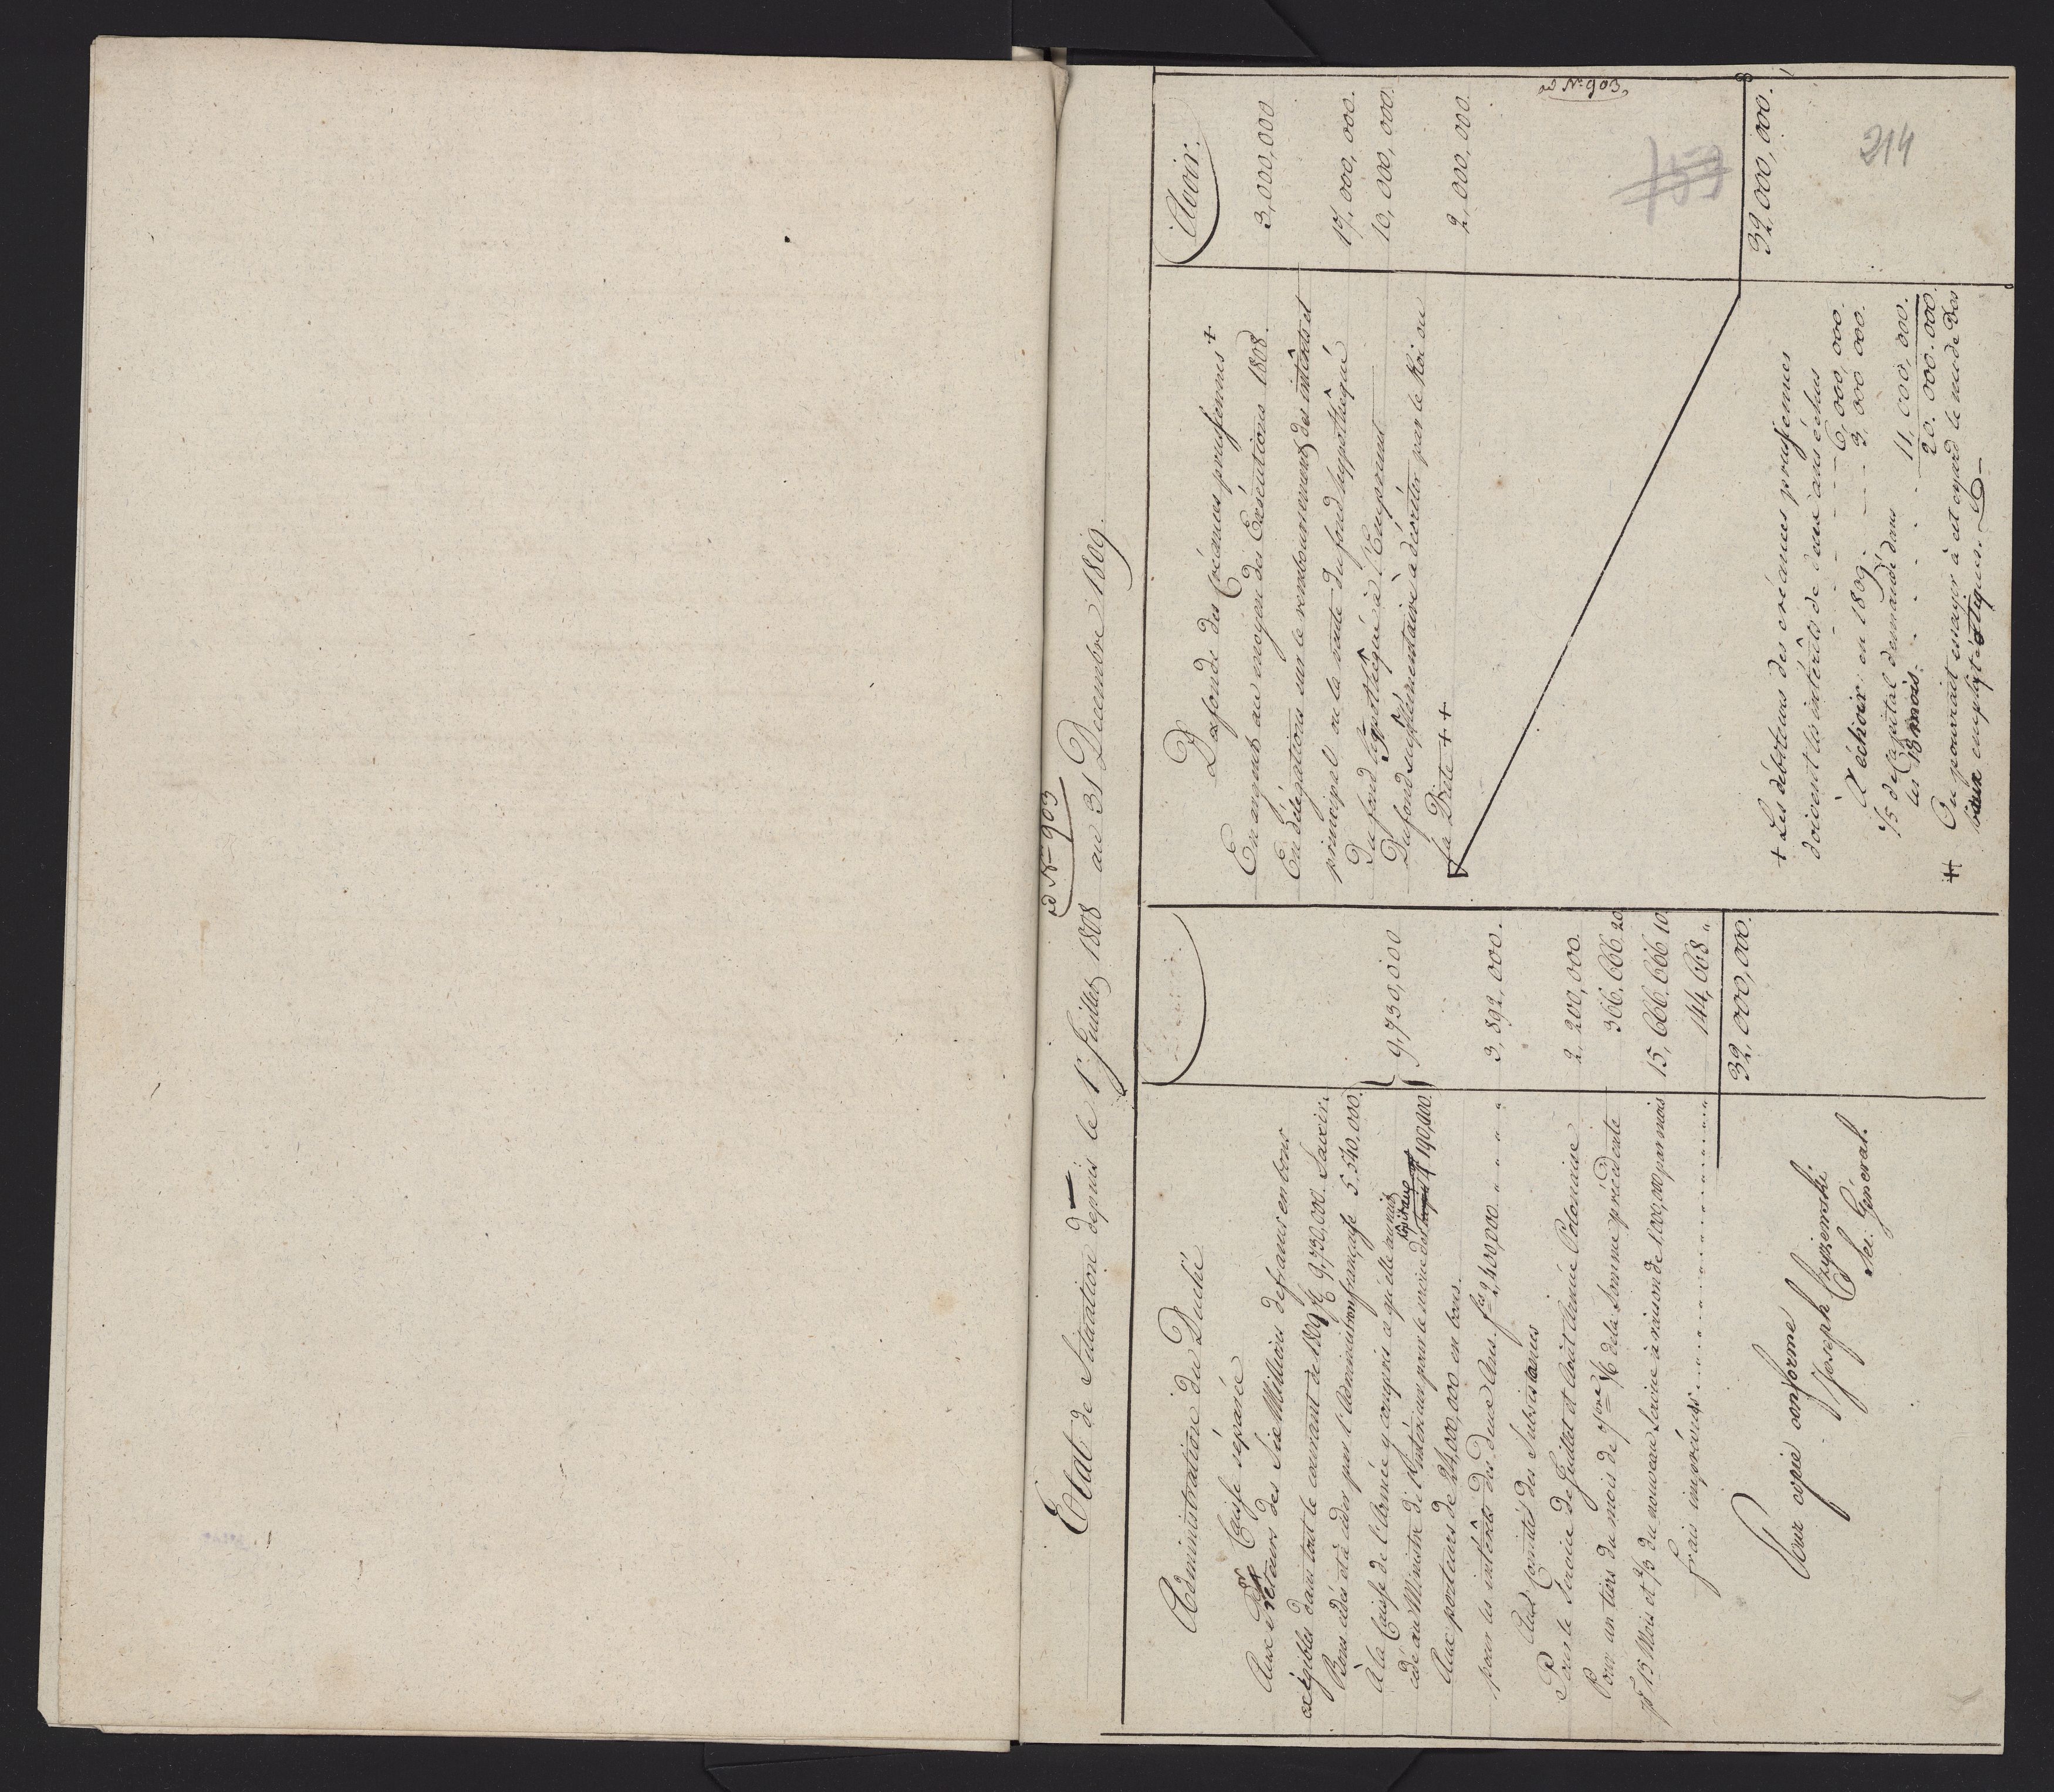 ad N° 903
Etat de Situation depuis le 1r Juillet 1808 au 31 Decembre 1809.
Administration du Duché
Caisse séparée
Aux Porteurs des Six Millions de francs en bons
exigibles dans tout le courant de 1809 f 9,730,000. Savoir.
Bons cédés et à céder par l'Administration française 5.540,000.
à la Caisse de l'Armée y compris ce qu'elle aurait
cédé au Ministre de l'Intérieur pour le service des 4,190,000.
9,730,000
Aux porteurs de 24,000,000 en bons.
pour les intérêts des deux Ans fcs 2,400,000 " " " " "
3,892,000.
Au Comité des Subsistances
Pour le Service de Juillet et Août Armée Polonaise
2,200,000.
Pour un tiers du mois de 7bre 1/6 de la Somme précédente
366,666 20
pr 15 Mois et 2/3 du nouveau Service à raison de 1.000,000 par mois
15,666,666 10
frais imprévus
144,668 "
32,000,000.
Pour copie conforme
Joseph Szyzemski
Sec. Général.
Avoir.
Des fonds des Créances prussiennes +
En argent au moyen des Exécutions 1808.
3,000,000
En délégations sur le remboursement des intérêts et
principal ou la vente du fond hypothéqué
17,000,000.
Du fond hypothéqué à l'Emprunt
10,000,000.
Du fond supplémentaire à décréter par le Roi ou
la Diète + +
2,000,000.
ad N° 903
32,000,000.
157
214
+ Les débiteurs des créances prussiennes
doivent les intérêts de deux ans échus
6,000,000.
à échoir en 1809. 3,000,000.
1/5 de Capital demandé dans
les 18 mois. 11,000,000.
20.000.000.
++ On pourrait essayer à cet égard la vente des
baux emphytéotiques.